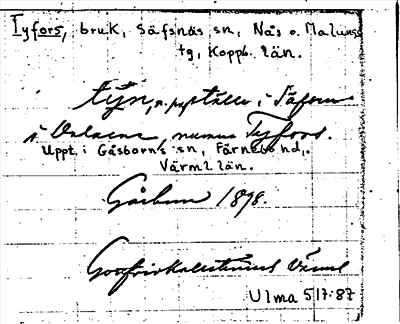 Tyfors, bruk, Säfsnäs sn, Nås o. Malungs
tg, Koppb. län.
týn, n. på ställe i Säfsen
i Dalarne, numera Tyfors.
Uppt. i Gåsborns sn, Färnebo hd,
Värml län.
Gåsborn 1898.
Gottfrid Kallstenius
Ulma 517:87